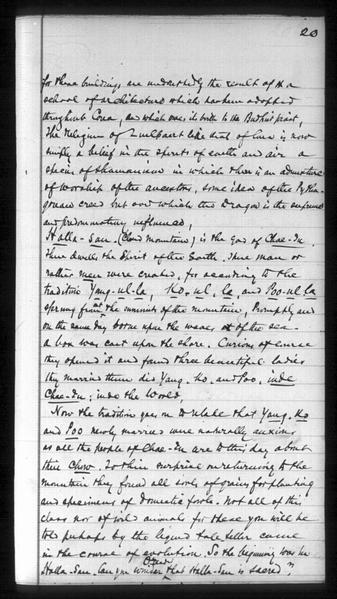 20
for these buildings are undoubtedly the result of the
school of architecture which has been adopted
throughout Corea, and which owes its birth to the Budhist priest,
The religion of Quelpaert like that of Corea is now
simply a belief in the spirits of earth and air a
species of Shamanism in which there is an admixture
of worship of the ancestors, some idea of the
creed but over which the Dragon is the supreme
and predominating influence,
Halla-San, (Cloud mountains) is the God of Chae-Ju,
there dwells the Spirit of the Earth. There man or
rather men were created, for according to the
tradition Yang-ul-la, Ko, ul, la, and Poo-ul la
sprung from the summits of the mountain, Promptly and
on the same day borne upon the waves of the sea
a box was cast upon the shore. Curious of course
they opened it and found three beautiful ladies
they married them did Yang, Ko, and Poo, in
Chae-Ju; in the World,
Now the tradition goes on to relate that Yang, Ko
and Poo newly married were naturally anxious
as all the people of Chae-Ju are to this day about
their Chow. To their surprise on returning to the
mountain they found all sorts of grains for planting
and specimens of domestic fowls. Not all of this
class nor of wild animals for these you will be
told perhaps by the legend tale teller came
in the course of evolution. So the beginning was in
Halla-San. Can you wonder that Halla-San is sacred?